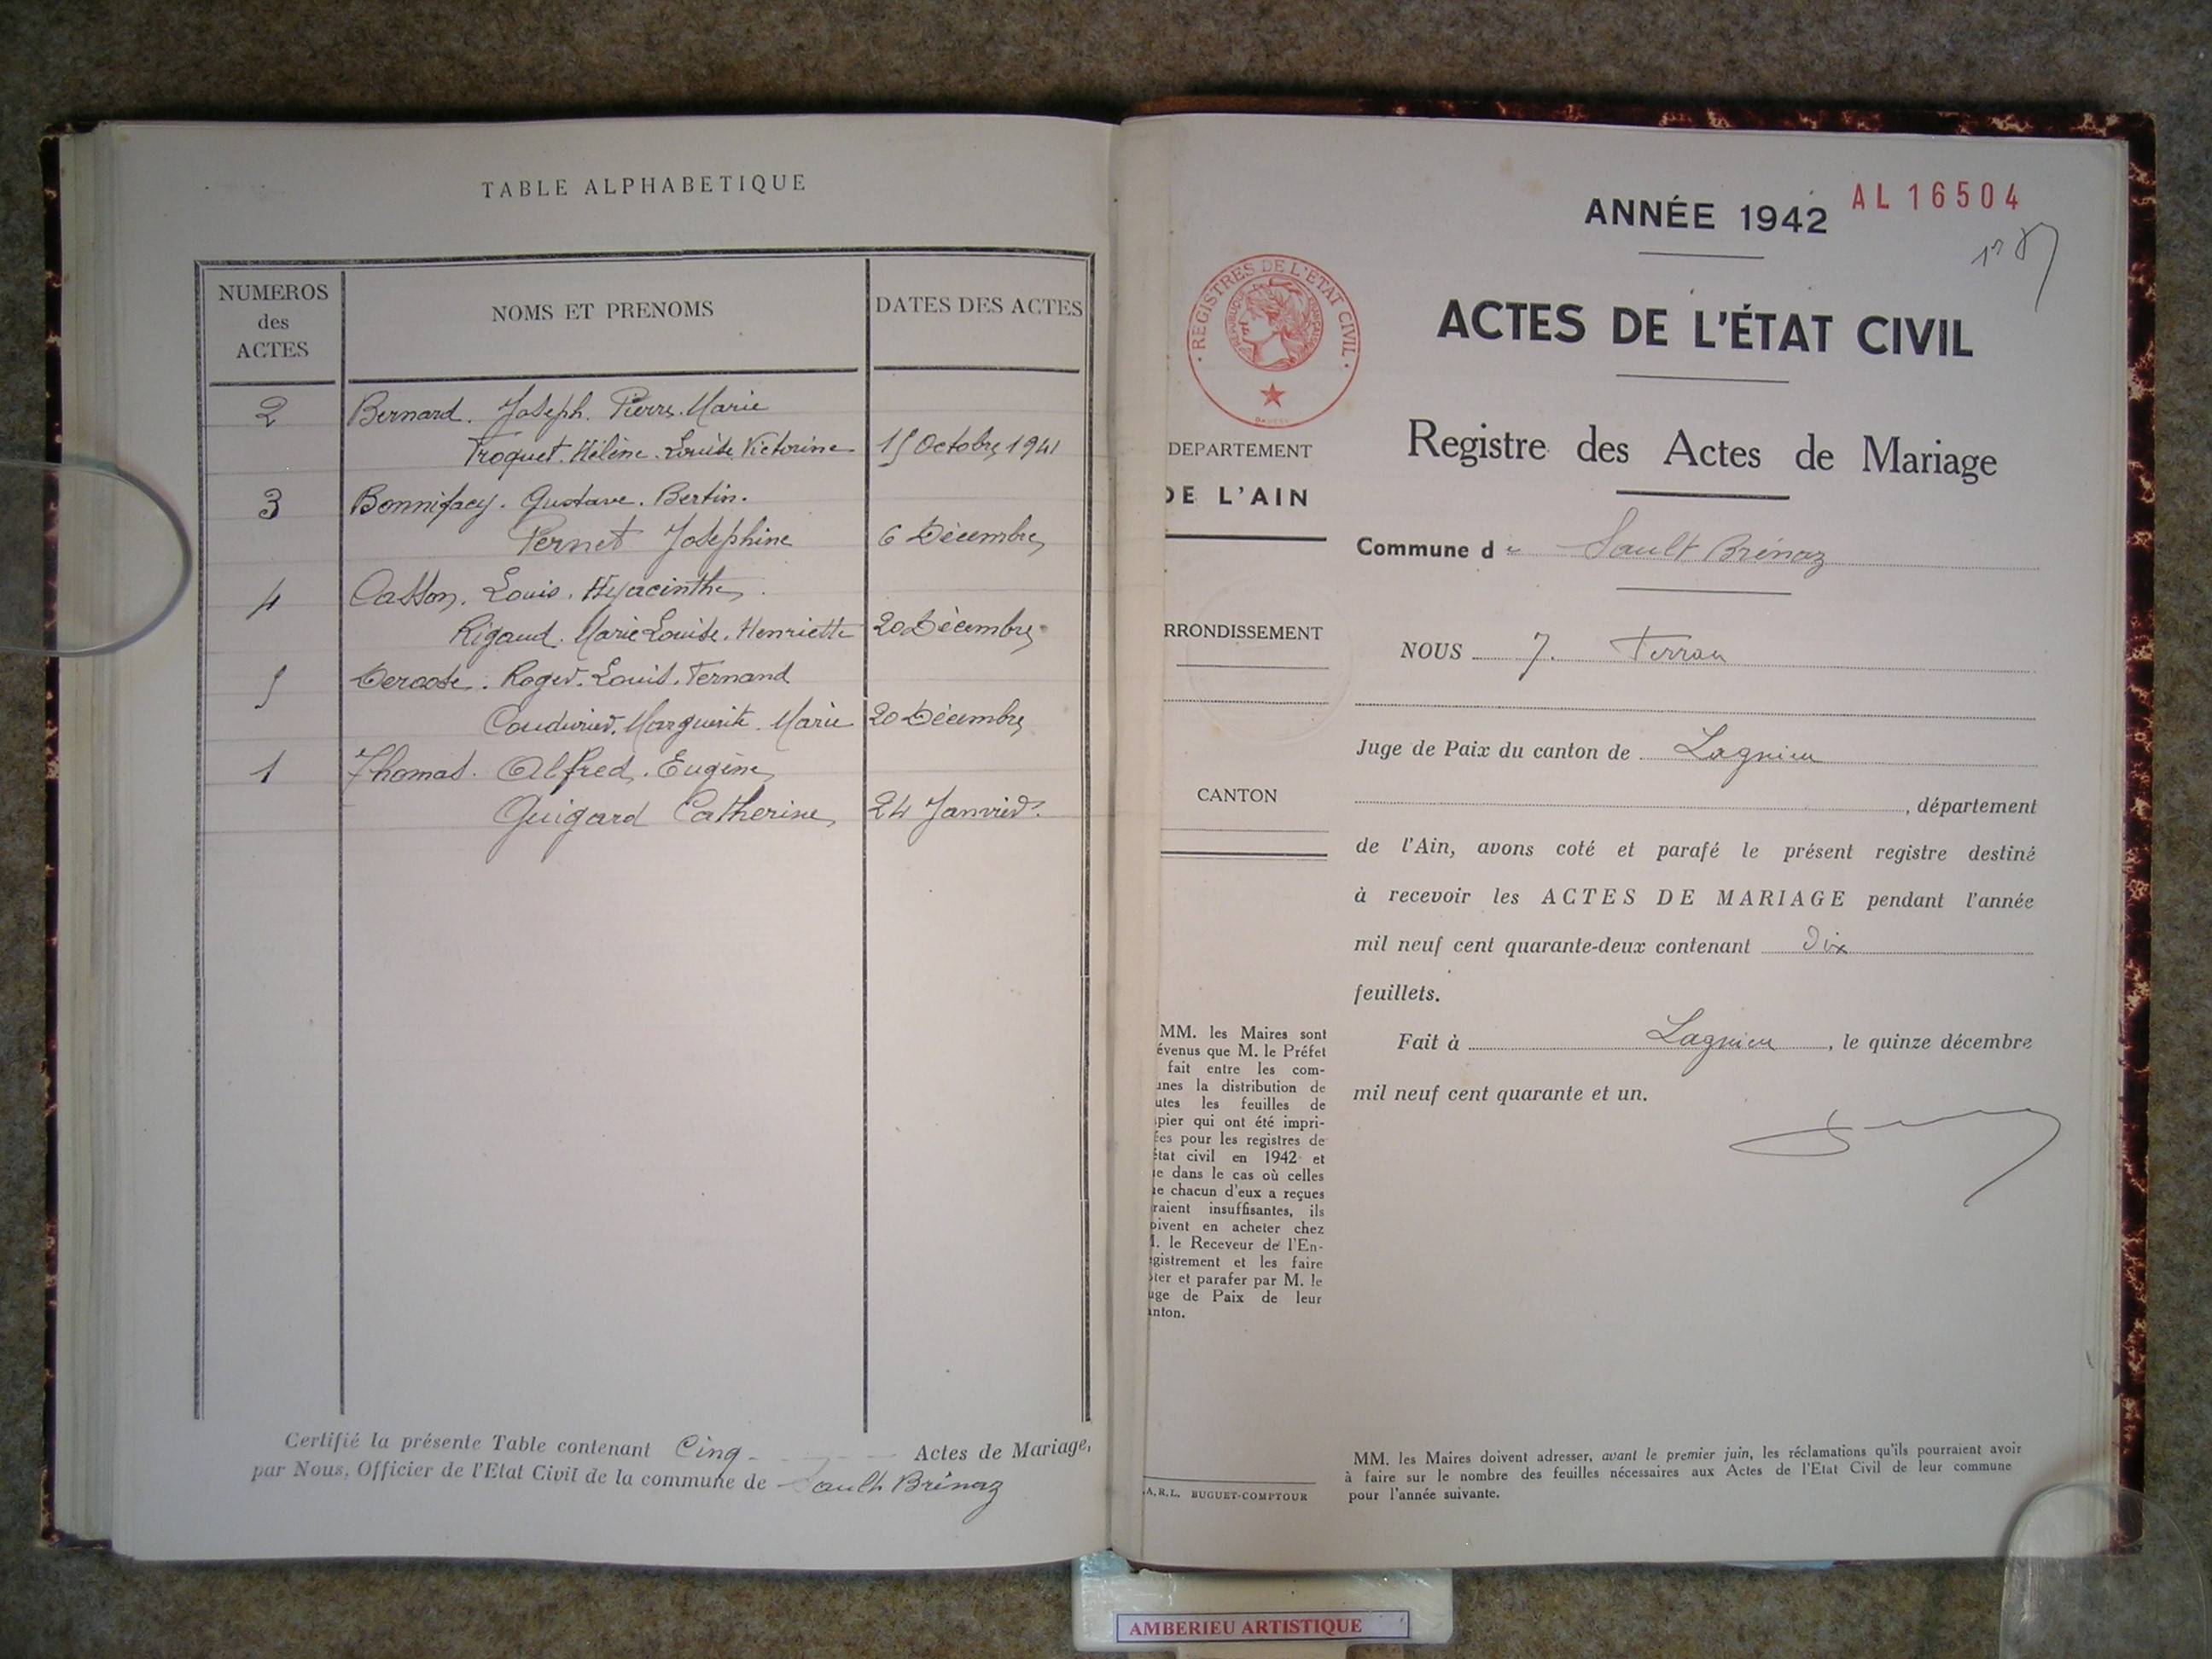 TABLE ALPHABETIQUE
NUMEROS
des
ACTES
NOMS ET PRENOMS
DATES DES ACTES
2 Bernard. Joseph. Pierre. Marie
Troquet. Hélène. Louise. Victorine 15 Octobre 1941
3 Bonnifacy. Gustave. Bertin.
Pernet Josephine 6 Décembre
4 Casson. Louis. Hyacinthe.
Rigaud. Marie Louise. Henriette 20 Décembre
5 Deroose. Roger. Louis. Fernand
Coudurier. Marguerite. Marie 20 Décembre
1 Thomas. Alfred. Eugène
Guigard Catherine 24 Janvier.
Certifié la présente Table contenant Cinq Actes de Mariage,
par Nous, Officier de l'Etat Civil de la commune de Sault Brénaz
ANNÉE 1942
AL 16504
REGISTRES DE L'ETAT CIVIL
REPUBLIQUE FRANÇAISE
ACTES DE L'ÉTAT CIVIL
Registre des Actes de Mariage
DEPARTEMENT
DE L'AIN
RRONDISSEMENT
CANTON
Commune de Sault Brénaz
NOUS J. Ferran
Juge de Paix du canton de Lagnieu
, département
de l'Ain, avons coté et parafé le présent registre destiné
à recevoir les ACTES DE MARIAGE pendant l'année
mil neuf cent quarante-deux contenant Dix
feuillets.
Fait à Lagnieu, le quinze décembre
mil neuf cent quarante et un.
MM. les Maires sont
évenus que M. le Préfet
fait entre les com-
unes la distribution de
utes les feuilles de
pier qui ont été impri-
ées pour les registres de
état civil en 1942 et
e dans le cas où celles
e chacun d'eux a reçues
raient insuffisantes, ils
oivent en acheter chez
. le Receveur de l'En-
gistrement et les faire
ter et parafer par M. le
uge de Paix de leur
anton.
A.R.L. BUGUET-COMPTOUR
MM. les Maires doivent adresser, avant le premier juin, les réclamations qu'ils pourraient avoir
à faire sur le nombre des feuilles nécessaires aux Actes de l'Etat Civil de leur commune
pour l'année suivante.
AMBERIEU ARTISTIQUE